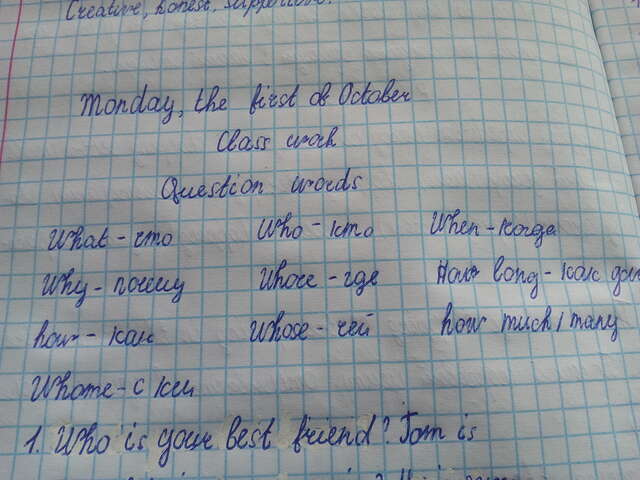 Creative, honest, supportive.
Monday, the first of October
Class work
Question words
What - что Who - кто When - когда
Why - почему Where - где How long - как
how - как Whose - чей how much/many
Whome - с кем
1. Who is your best friend? Tom is